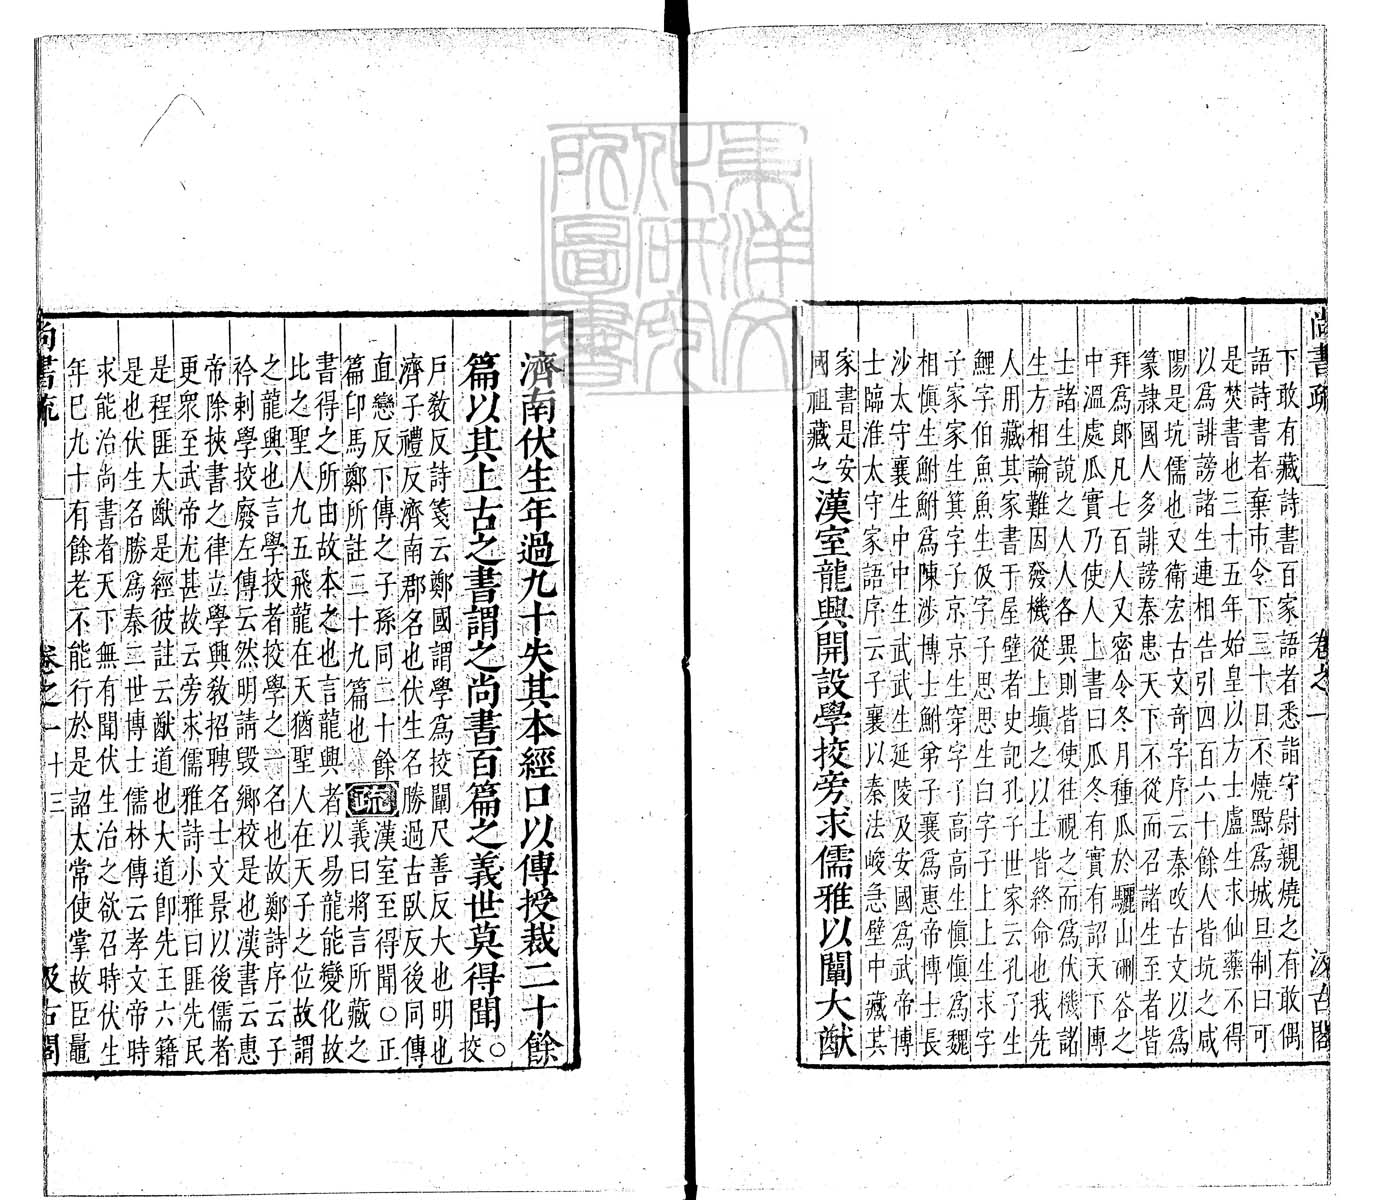 尚書疏 卷之一 汲古閣
下敢有藏詩書百家語者悉詣守尉親燒之有敢偶
語詩書者棄市令下三十日不燒黥為城旦制曰可
是焚書也三十五年始皇以方士盧生求仙藥不得
以為誹謗諸生連相告引四百六十餘人皆坑之咸
陽是坑儒也又衛宏古文奇字序云秦改古文以為
篆隷國人多誹謗秦患天下不從而召諸生至者皆
拜為郎凡七百人又密令冬月種瓜於驪山硎谷之
中溫處瓜實乃使人上書曰瓜冬有實有詔天下博
士諸生說之人人各異則皆使往視之而為伏機諸
生方相論難因發機從上填之以土皆終命也我先
人用藏其家書于屋壁者史記孔子世家云孔子生
鯉字伯魚魚生伋字子思思生白字子上上生求字
子家家生箕字子京京生穿字子高高生愼愼為魏
相愼生鮒鮒為陳涉博士鮒弟子襄為惠帝博士長
沙太守襄生中中生武武生延陵及安國為武帝博
士臨淮太守家語序云子襄以秦法峻急壁中藏其
家書是安國祖藏之漢室龍興開設學校旁求儒雅以闡大猷
濟南伏生年過九十失其本經口以傳授裁二十餘
篇以其上古之書謂之尚書百篇之義世莫得聞○校
戶敎反詩箋云鄭國謂學為校闡尺善反大也明也
濟子禮反濟南郡名也伏生名勝過古臥反後同傳
直戀反下傳之子孫同二十餘
篇卽馬鄭所註二十九篇也 疏 漢室至得聞○正義曰將言所藏之
書得之所由故本之也言龍興者以易龍能變化故
比之聖人九五飛龍在天猶聖人在天子之位故謂
之龍興也言學校者校學之一名也故鄭詩序云子
衿刺學校廢左傳云然明請毀鄉校是也漢書云惠
帝除挾書之律立學興敎招聘名士文景以後儒者
更衆至武帝尤甚故云旁求儒雅詩小雅曰匪先民
是程匪大猷是經彼註云猷道也大道卽先王六籍
是也伏生名勝為秦二世博士儒林傳云孝文帝時
求能治尚書者天下無有聞伏生治之欲召時伏生
年已九十有餘老不能行於是詔太常使掌故臣鼂
尚書疏 卷之一 十三 汲古閣
東洋文化研究所圖書